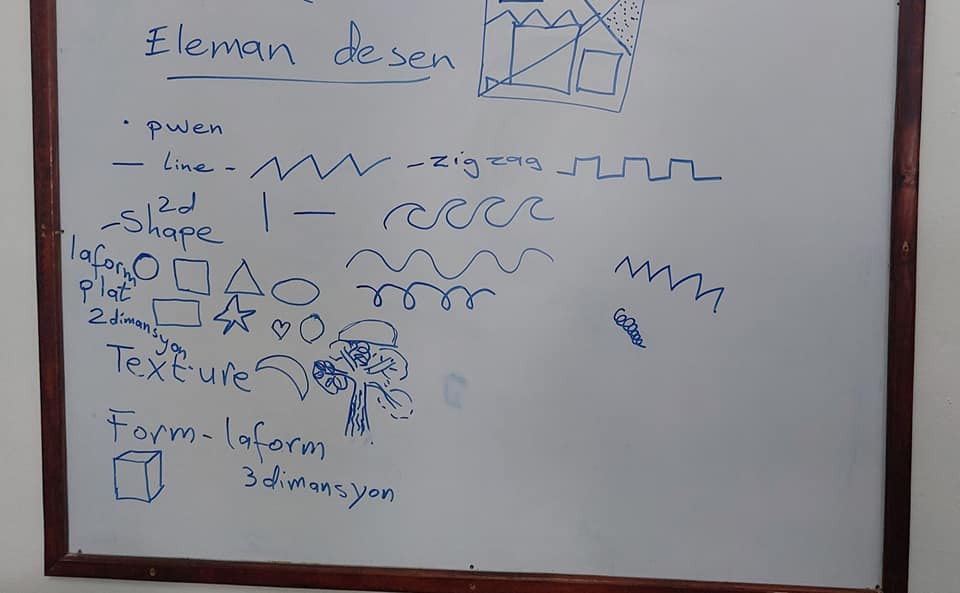 Eleman desen
• pwen
— line - - zig zag
- 2d Shape
laform plat
2 dimansyon
Texture
Form - laform
3 dimansyon